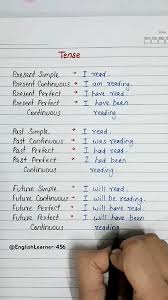 Tense
Present Simple = I read.
Present Continuous = I am reading.
Present Perfect = I have read.
Present Perfect = I have been
Continuous reading.
Past Simple = I read.
Past Continuous = I was reading.
Past Perfect = I had read.
Past Perfect = I had been
Continuous reading
Future Simple = I will read.
Future Continuous = I will be reading.
Future Perfect = I will have read.
Future Perfect = I will have been
Continuous reading
@EnglishLearner-456